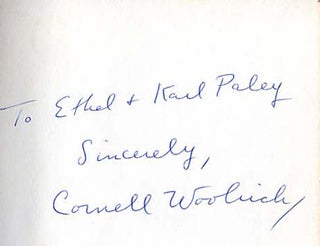 To Ethel + Karl Paley
Sincerely,
Cornell Woolrich